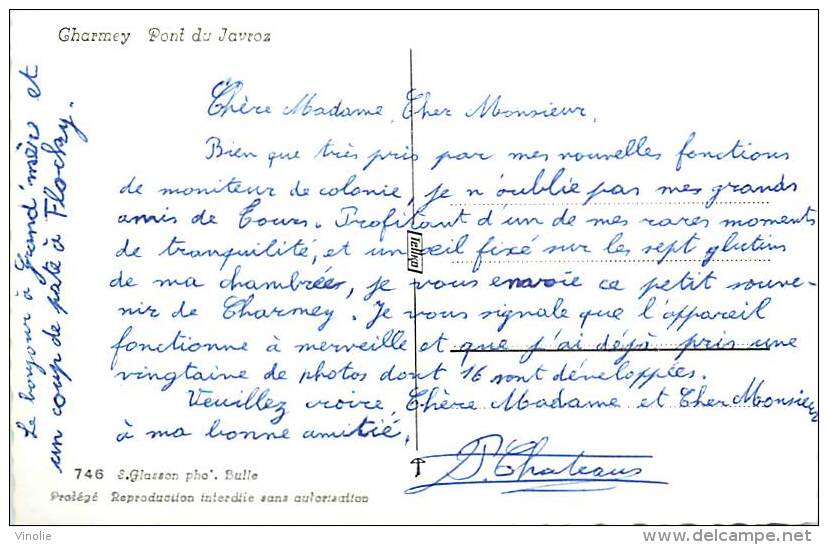 Charmey Pont du Javroz
Chère Madame, Cher Monsieur,
Bien que très pris par mes nouvelles fonctions
de moniteur de colonie, je n'oublie pas mes grands
amis de Tours. Profitant d'un de mes rares moments
de tranquilité, et un œil fixé sur les sept glutins
de ma chambrée, je vous envoie ce petit souve-
nir de Charmey. Je vous signale que l'appareil
fonctionne à merveille et que j'ai déjà pris une
vingtaine de photos dont 16 sont développées.
Veuillez croire, Chère Madame et Cher Monsieur
à ma bonne amitié.
P. Chateaus
Le bonjour à Grand'mère et
un coup de pate à Flocky.
746 S.Glasson phot. Bulle
Protégé Reproduction interdite sans autorisation
Vinolie
delcampe.net